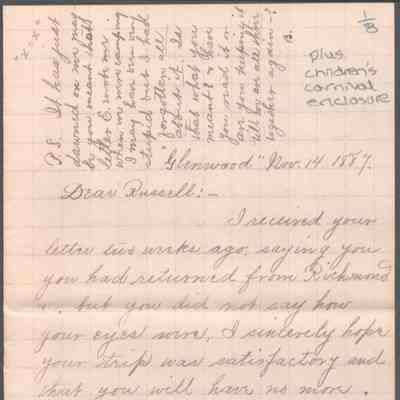 "x = x"
P.S. It has just
dawned on me may
be you meant that
letter E. wrote me
when we were camping
I may have been very
stupid but I had
"forgotten all
about it. Is
that what you
meant? & have
you read it or
are you keeping it
till boy an all other
together again-?
B.
1/8
plus
children's
carnival
enclosure
"Glenwood" Nov. 14. 1887.
Dear Russell:-
I received your
letter two weeks ago, saying you
you had returned from Richmond
but you did not say how
your eyes were, I sincerely hope
your trip was satisfactory and
that you will have no more